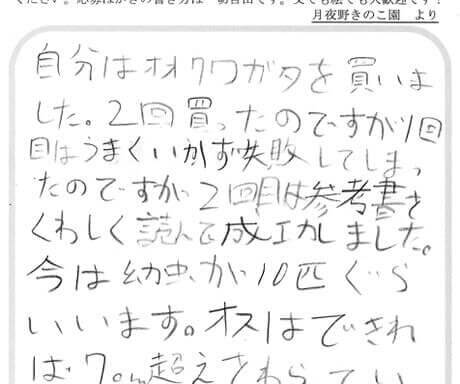 ください。応募はがきの書き方は一切自由です。文でも絵でも大歓迎です！
月夜野きのこ園　より
自分はオオクワガタを買いま
した。2回買ったのですが1回
目はうまくいかず失敗してしまっ
たのですが2回目は参考書を
くわしく読んで成工力しました。
今は幼虫が10匹ぐら
いいます。オスはできれ
ば7cm超えさわらてい